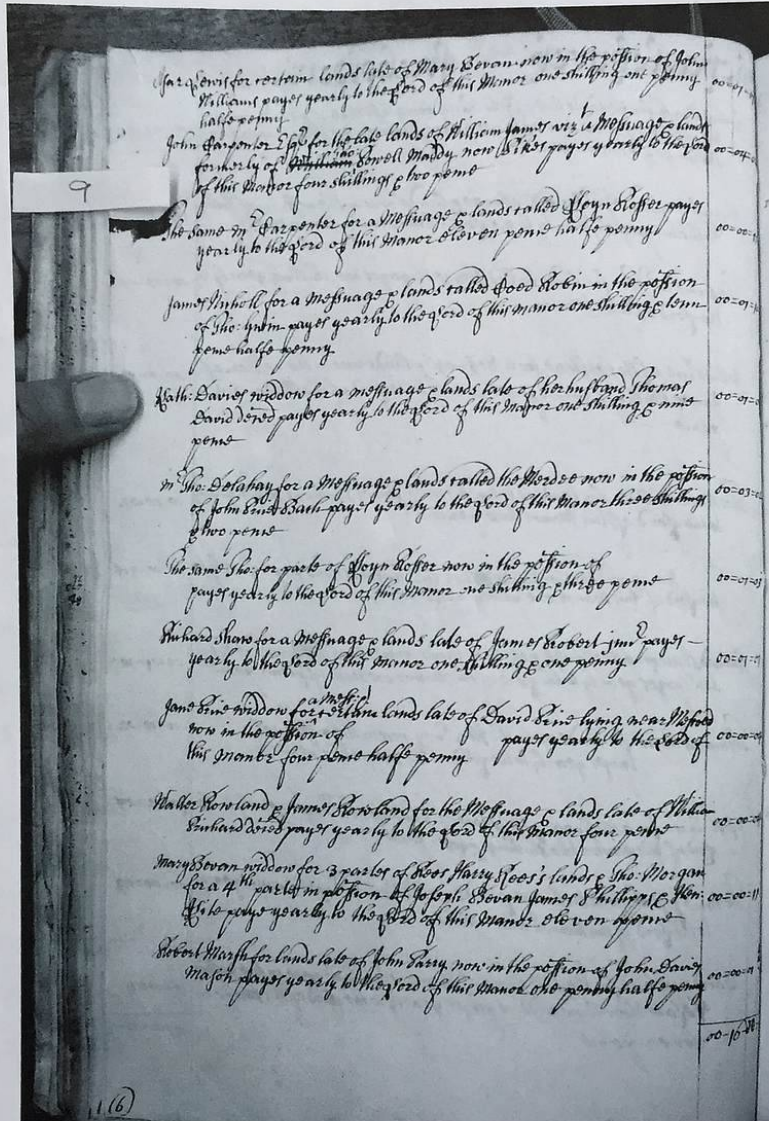 Lewis for certain lands late of Mary Bevan now in the possion of John
Williams payes yearly to the Lord of this Manor one shilling one penny
halfe penny
John Carpenter Esqr for the late lands of William James vizt a Messuage & lands
formerly of Howell Maddy now Sikes payes yearly to the Lord
of this Manor four shillings & two pence
9
The same Mr Carpenter for a Messuage & lands called Lloyn Rosser payes
yearly to the Lord of this Manor eleven pence halfe penny
James Nicholl for a Messuage & lands called Coed Robin in the possion
of Tho: Gwin payes yearly to the Lord of this Manor one shilling & tenn
pence halfe penny
Kath: Davies widdow for a Messuage & lands late of her husband Thomas
David deced payes yearly to the Lord of this Manor one shilling & nine
pence
Mr Tho: Delahay for a Messuage & lands called the Werdee now in the possion
of John Price Bach payes yearly to the Lord of this Manor three shillings
& two pence
The same Tho: for parte of Lloyn Rosser now in the possion of
payes yearly to the Lord of this Manor one shilling & three pence
Richard Shaw for a Messuage & lands late of James Robert junr payes
yearly to the Lord of this Manor one shilling & one penny
Jane Price widdow for a Mess: & certain lands late of David Price lying near
now in the possion of payes yearly to the Lord of
this Manor four pence halfe penny
Walter Rowland & James Rowland for the Messuage & lands late of William
Prichard deced payes yearly to the Lord of this Manor four pence
Mary Bevan widdow for 3 partes of Rees Harry Rees's lands & Tho: Morgan
for a 4th parte in possion of Joseph Bevan James Phillipps & Hen:
paye yearly to the Lord of this Manor eleven pence
Robert Marsh for lands late of John Parry now in the possion of John Davies
Mason payes yearly to the Lord of this Manor one penny halfe penny